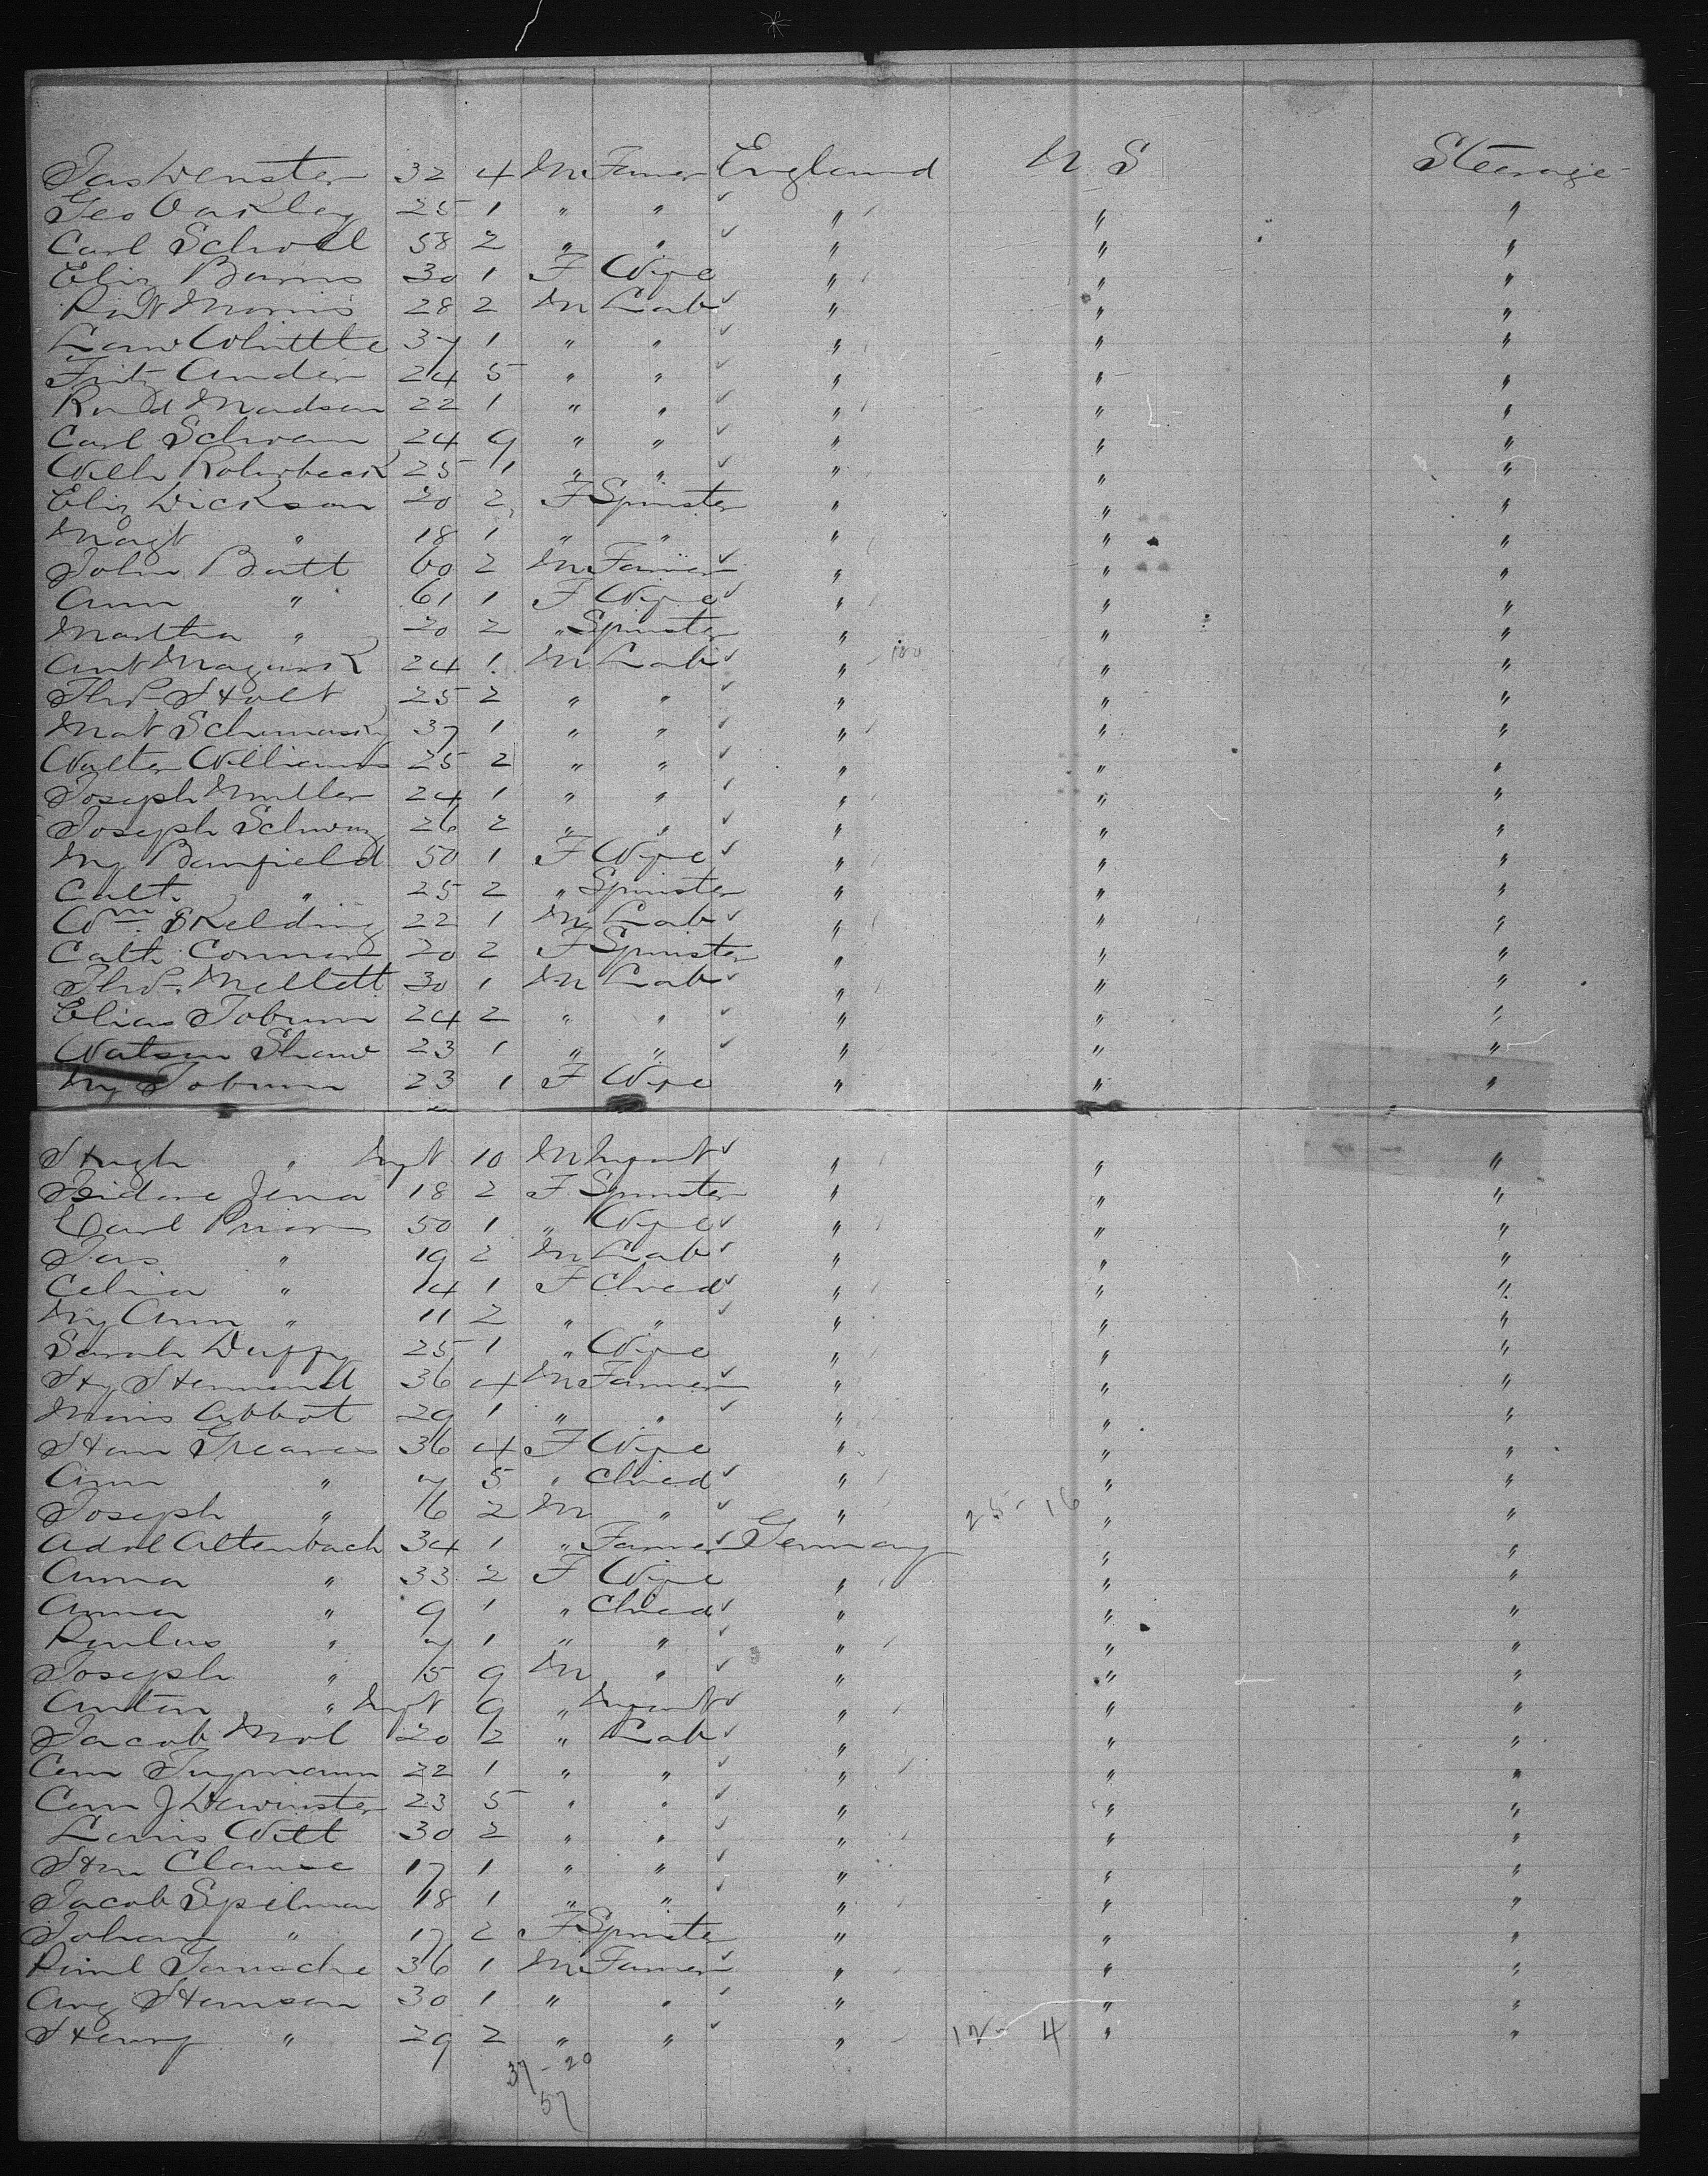 Jas Wenster 32 4 M Farmer England U S Steerage
Geo Oakley 25 1 " " " " "
Carl Scholl 58 2 " " " " "
Eliz Barns 30 1 F Wife " " "
Robt Morris 28 2 M Lab " " "
Law Whittle 37 1 " " " " "
Fritz Ander 24 5 " " " " "
Madsen 22 1 " " " " "
Carl Schwan 24 9 " " " " "
Willh Rohrbeck 25 1 " " " " "
Eliz Dickson 20 2 F Spinster " " "
Magt " 18 1 " " " " "
John Batt 60 2 M Farmer " " "
Ann " 61 1 F Wife " " "
Martha " 20 2 " Spinster " " "
Ant 24 1 M Lab " " "
Thos Holt 25 2 " " " " "
Mat 37 1 " " " " "
Walter Williams 25 2 " " " " "
Joseph Muller 24 1 " " " " "
Joseph Schwarz 26 2 " " " " "
My Bamfield 50 1 F Wife " " "
Cath " 25 2 " Spinster " " "
Wm Skelding 22 1 M Lab " " "
Cath Connor 20 2 F Spinster " " "
Thos Mellett 30 1 M Lab " " "
Elias Toburn 24 2 " " " " "
Watson Shaw 23 1 " " " " "
My Toburn 23 1 F Wife " " "
Hugh " Inft 10 M Infant " " "
Isidore Jena 18 2 F Spinster " " "
Prior 50 1 " Wife " " "
Jas " 19 2 M Lab " " "
Celia " 14 1 F Child " " "
My Ann " 11 2 " " " " "
Sarah Duffy 25 1 " Wife " " "
Hy 36 4 M Farmer " " "
Abbot 29 1 " " " " "
Han Greaves 36 4 F Wife " " "
Ann " 7 5 " Child " " "
Joseph " 6 2 M " " 25-16 " "
Adol Altenbach 34 1 " Farmer Germany " "
Anna " 33 2 F Wife " " "
Anna " 9 1 " Child " " "
" 7 1 " " " " "
Joseph " 5 9 M " " " "
Anton " Inft 9 " Infant " " "
Jacob Mol 20 2 " Lab " " "
22 1 " " " " "
23 5 " " " " "
Louis Witt 30 2 " " " " "
Hm Clause 17 1 " " " " "
Jacob Spilman 18 1 " " " " "
Johan " 17 2 F Spinster " " "
36 1 M Farmer " " "
Aug Hamson 30 1 " " " " "
Henry " 29 2 " " " 12-4 " "
37-20
57